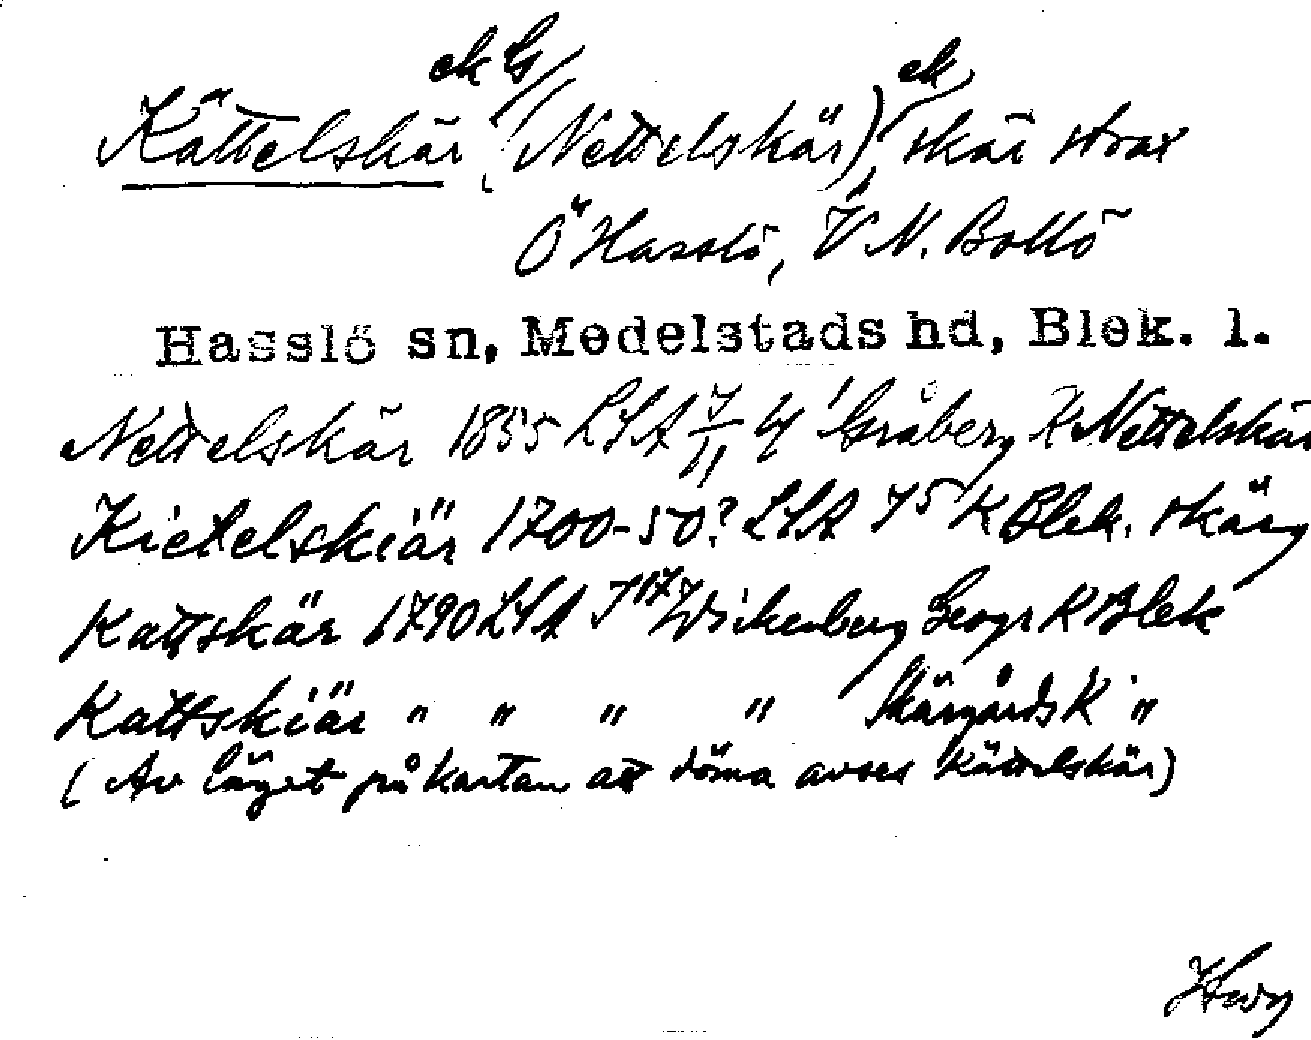 ek G
ek
Kättelskär (Nettelskär), skär strax
Ö Hasslö, V N. Bollö
Hasslö sn, Medelstads hd, Blek. l.
Nettelskär 1855 LSA 7/11 Gråberg K Nettelskär
Kietelskiär 1700-50? LSA 75 K Blek. skärg
Kattskär 1790 LSA J 17 Wickenberg Geogr K Blek
Kattskiär " " " " Skärgårds K "
(Av läget på kartan att döma avses Kättelskär)